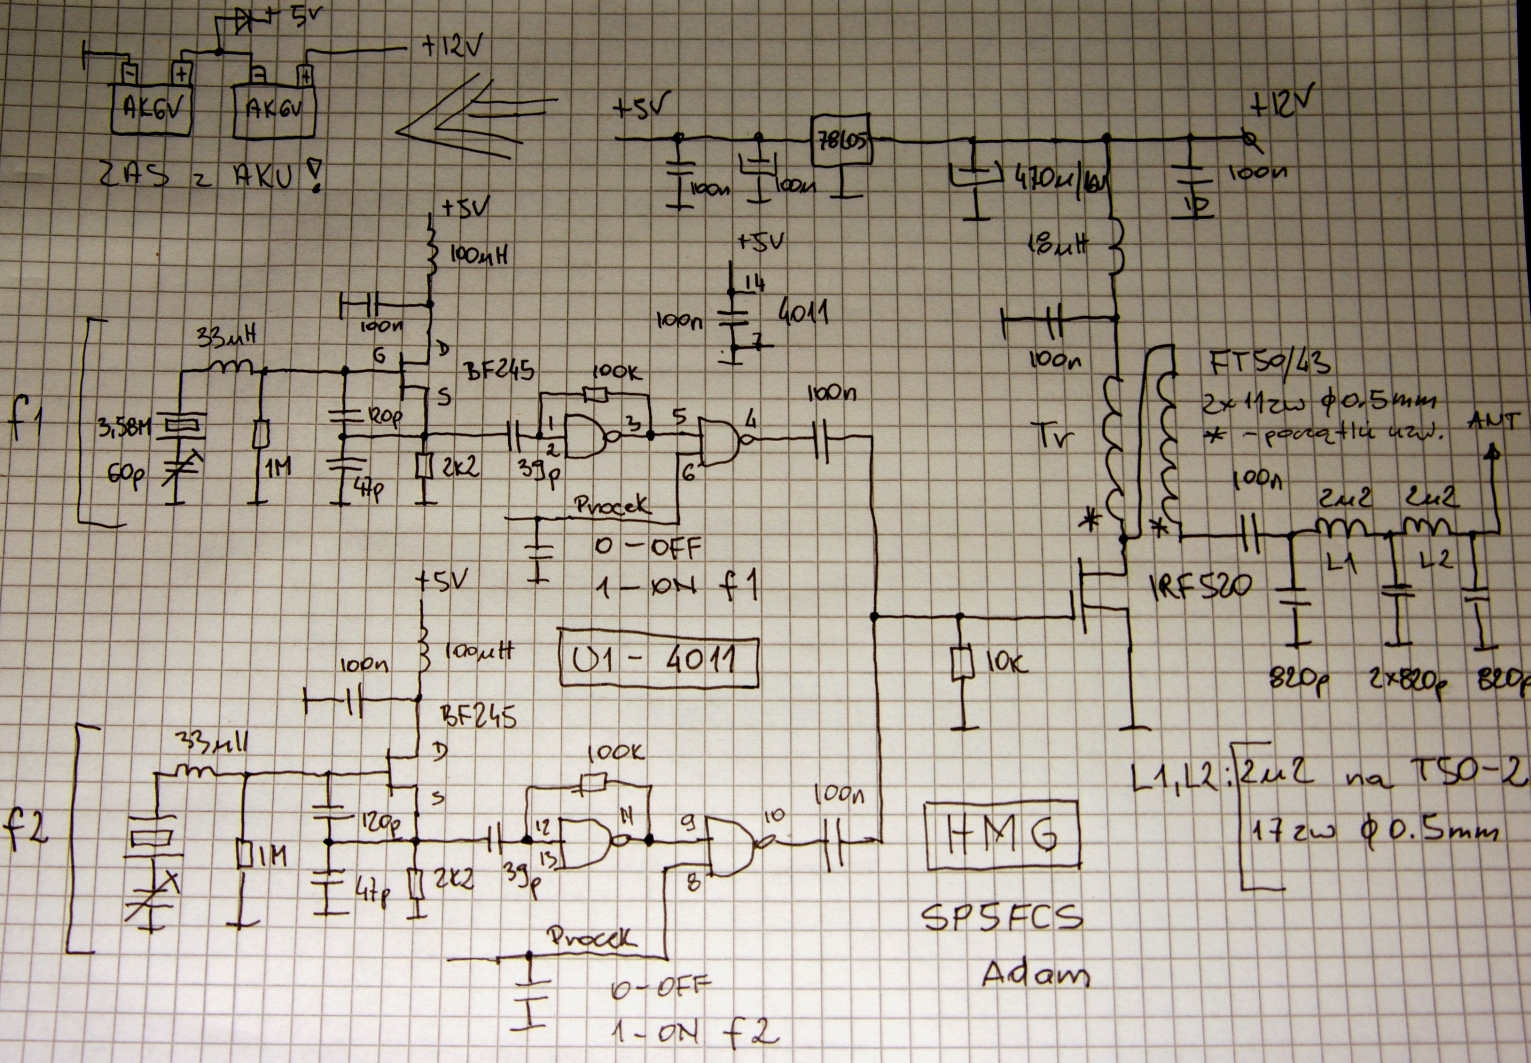 +5V
+12V
AK6V
AK6V
2AS 2 AKU!
+5V
78L05
+12V
100n
100n
470µ/16V
100n
+5V
100µH
100n
+5V
14
100n
4011
7
18µH
100n
33µH
G
D
S
BF245
f1
3,58M
60p
1M
120p
47p
2k2
39p
100k
1
2
3
5
6
4
100n
Procek
0-OFF
1-ON f1
Tr
FT50/43
2x11zw φ0.5mm
* - początki uzw.
ANT
*
*
100n
2µ2
2µ2
L1
L2
IRF520
10k
820p
2x820p
820p
+5V
100µH
100n
BF245
U1-4011
f2
33µH
D
S
1M
120p
47p
2k2
39p
100k
12
13
11
9
8
10
100n
Procek
0-OFF
1-ON f2
HMG
SP5FCS
Adam
L1,L2: 2µ2 na T50-2
17zw φ0.5mm